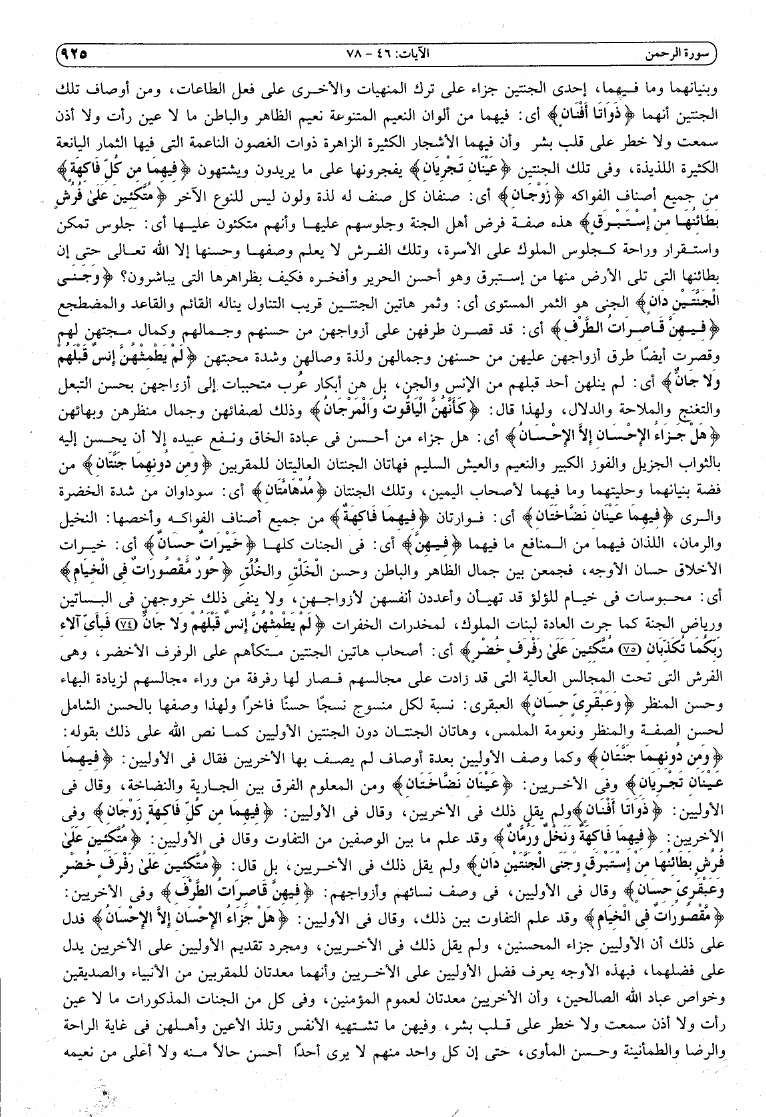 سورة الرحمن الآيات: ٤٦ - ٧٨ ٩٢٥
وبنيانهما وما فيهما، إحدى الجنتين جزاء على ترك المنهيات والأخرى على فعل الطاعات، ومن أوصاف تلك
الجنتين أنهما ﴿ذَوَاتَا أَفْنَانٍ﴾ أى: فيهما من ألوان النعيم المتنوعة نعيم الظاهر والباطن ما لا عين رأت ولا أذن
سمعت ولا خطر على قلب بشر وأن فيهما الأشجار الكثيرة الزاهرة ذوات الغصون الناعمة التى فيها الثمار اليانعة
الكثيرة اللذيذة، وفى تلك الجنتين ﴿عَيْنَانِ تَجْرِيَانِ﴾ يفجرونها على ما يريدون ويشتهون ﴿فِيهِمَا مِن كُلِّ فَاكِهَةٍ﴾
من جميع أصناف الفواكه ﴿زَوْجَانِ﴾ أى: صنفان كل صنف له لذة ولون ليس للنوع الآخر ﴿مُتَّكِئِينَ عَلَىٰ فُرُشٍ
بَطَائِنُهَا مِنْ إِسْتَبْرَقٍ﴾ هذه صفة فرض أهل الجنة وجلوسهم عليها وأنهم متكئون عليها أى: جلوس تمكن
واستقرار وراحة كجلوس الملوك على الأسرة، وتلك الفرش لا يعلم وصفها وحسنها إلا الله تعالى حتى إن
بطائنها التى تلى الأرض منها من إستبرق وهو أحسن الحرير وأفخره فكيف بظراهرها التى يباشرون؟ ﴿وَجَنَى
الْجَنَّتَيْنِ دَانٍ﴾ الجنى هو الثمر المستوى أى: وثمر هاتين الجنتين قريب التناول يناله القائم والقاعد والمضطجع
﴿فِيهِنَّ قَاصِرَاتُ الطَّرْفِ﴾ أى: قد قصرن طرفهن على أزواجهن من حسنهم وجمالهم وكمال مجتهن لهم
وقصرت أيضًا طرق أزواجهن عليهن من حسنهن وجمالهن ولذة وصالهن وشدة محبتهن ﴿لَمْ يَطْمِثْهُنَّ إِنسٌ قَبْلَهُمْ
وَلا جَانٌّ﴾ أى: لم ينلهن أحد قبلهم من الإنس والجن، بل هن أبكار عُرب متحببات إلى أزراجهن بحسن التبعل
والتغنج والملاحة والدلال، ولهذا قال: ﴿كَأَنَّهُنَّ الْيَاقُوتُ وَالْمَرْجَانُ﴾ وذلك لصفائهن وجمال منظرهن وبهائهن
﴿هَلْ جَزَاءُ الإِحْسَانِ إِلاَّ الإِحْسَانُ﴾ أى: هل جزاء من أحسن فى عبادة الخاق ونفع عبيده إلا أن يحسن إليه
بالثواب الجزيل والفوز الكبير والنعيم والعيش السليم فهاتان الجنتان العاليتان للمقربين ﴿وَمِن دُونِهِمَا جَنَّتَانِ﴾ من
فضة بنيانهما وحليتهما وما فيهما لأصحاب اليمين، وتلك الجنتان ﴿مُدْهَامَّتَانِ﴾ أى: سوداوان من شدة الخضرة
والرى ﴿فِيهِمَا عَيْنَانِ نَضَّاخَتَانِ﴾ أى: فوارتان ﴿فِيهِمَا فَاكِهَةٌ﴾ من جميع أصناف الفواكه وأخصها: النخيل
والرمان، اللذان فيهما من المنافع ما فيهما ﴿فِيهِنَّ﴾ أى: فى الجنات كلها ﴿خَيْرَاتٌ حِسَانٌ﴾ أى: خيرات
الأخلاق حسان الأوجه، فجمعن بين جمال الظاهر والباطن وحسن الْخَلْقِ والخُلُقِ ﴿حُورٌ مَّقْصُورَاتٌ فِى الْخِيَامِ﴾
أى: محبوسات فى خيام للؤلؤ قد تهيأن وأعددن أنفسهن لأزواجهن، ولا ينفى ذلك خروجهن فى البساتين
ورياض الجنة كما جرت العادة لبنات الملوك، لمخدرات الخفرات ﴿لَمْ يَطْمِثْهُنَّ إِنسٌ قَبْلَهُمْ وَلا جَانٌّ (٧٤) فَبِأَىِّ آلاءِ
رَبِّكُمَا تُكَذِّبَانِ (٧٥) مُتَّكِئِينَ عَلَىٰ رَفْرَفٍ خُضْرٍ﴾ أى: أصحاب هاتين الجنتين متكأهم على الرفرف الأخضر، وهى
الفرش التى تحت المجالس العالية التى قد زادت على مجالسهم فصار لها رفرفة من وراء مجالسهم لزيادة البهاء
وحسن المنظر ﴿وَعَبْقَرِىٍّ حِسَانٍ﴾ العبقرى: نسبة لكل منسوج نسجًا حسنًا فاخرًا ولهذا وصفها بالحسن الشامل
لحسن الصفة والمنظر ونعومة الملمس، وهاتان الجنتان دون الجنتين الأوليين كما نص الله على ذلك بقوله:
﴿وَمِن دُونِهِمَا جَنَّتَانِ﴾ وكما وصف الأوليين بعدة أوصاف لم يصف بها الأخريين فقال فى الأوليين: ﴿فِيهِمَا
عَيْنَانِ تَجْرِيَانِ﴾ وفى الأخريين: ﴿عَيْنَانِ نَضَّاخَتَانِ﴾ ومن المعلوم الفرق بين الجارية والنضاخة، وقال فى
الأوليين: ﴿ذَوَاتَا أَفْنَانٍ﴾ولم يقل ذلك فى الأخريين، وقال فى الأوليين: ﴿فِيهِمَا مِن كُلِّ فَاكِهَةٍ زَوْجَانِ﴾ وفى
الأخريين: ﴿فِيهِمَا فَاكِهَةٌ وَنَخْلٌ وَرُمَّانٌ﴾ وقد علم ما بين الوصفين من التفاوت وقال فى الأوليين: ﴿مُتَّكِئِينَ عَلَىٰ
فُرُشٍ بَطَائِنُهَا مِنْ إِسْتَبْرَقٍ وَجَنَى الْجَنَّتَيْنِ دَانٍ﴾ ولم يقل ذلك فى الأخريين، بل قال: ﴿مُتَّكِئِينَ عَلَىٰ رَفْرَفٍ خُضْرٍ
وَعَبْقَرِىٍّ حِسَانٍ﴾ وقال فى الأوليين، فى وصف نسائهم وأزواجهم: ﴿فِيهِنَّ قَاصِرَاتُ الطَّرْفِ﴾ وفى الأخريين:
﴿مَّقْصُورَاتٌ فِى الْخِيَامِ﴾ وقد علم التفاوت بين ذلك، وقال فى الأوليين: ﴿هَلْ جَزَاءُ الإِحْسَانِ إِلاَّ الإِحْسَانُ﴾ فدل
على ذلك أن الأوليين جزاء المحسنين، ولم يقل ذلك فى الأخريين، ومجرد تقديم الأوليين على الأخريين يدل
على فضلهما، فبهذه الأوجه يعرف فضل الأوليين على الأخريين وأنهما معدتان للمقربين من الأنبياء والصديقين
وخواص عباد الله الصالحين، وأن الأخريين معدتان لعموم المؤمنين، وفى كل من الجنات المذكورات ما لا عين
رأت ولا أذن سمعت ولا خطر على قلب بشر، وفيهن ما تشتهيه الأنفس وتلذ الأعين وأهلهن فى غاية الراحة
والرضا والطمأنينة وحسن المأوى، حتى إن كل واحد منهم لا يرى أحدًا أحسن حالاً منه ولا أعلى من نعيمه